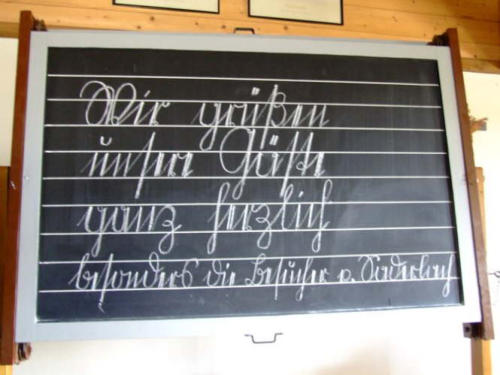 Wir grüßen
unsere Gäste
ganz herzlich
besonders die Besucher v.